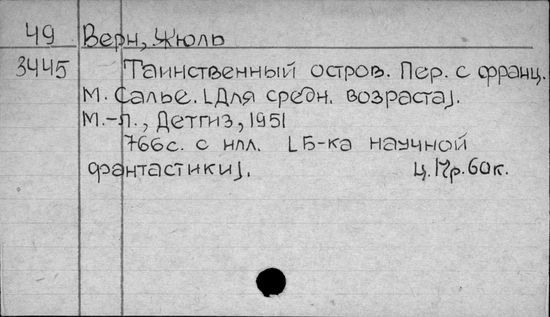 49 Верн, Жюль
3445 Таинственный остров. Пер. с франц.
М. Салье. [Для средн. возраста].
М.-Л., Детгиз, 1951
766с. с илл. [Б-ка научной
фантастики]. Ц. 17р. 60к.